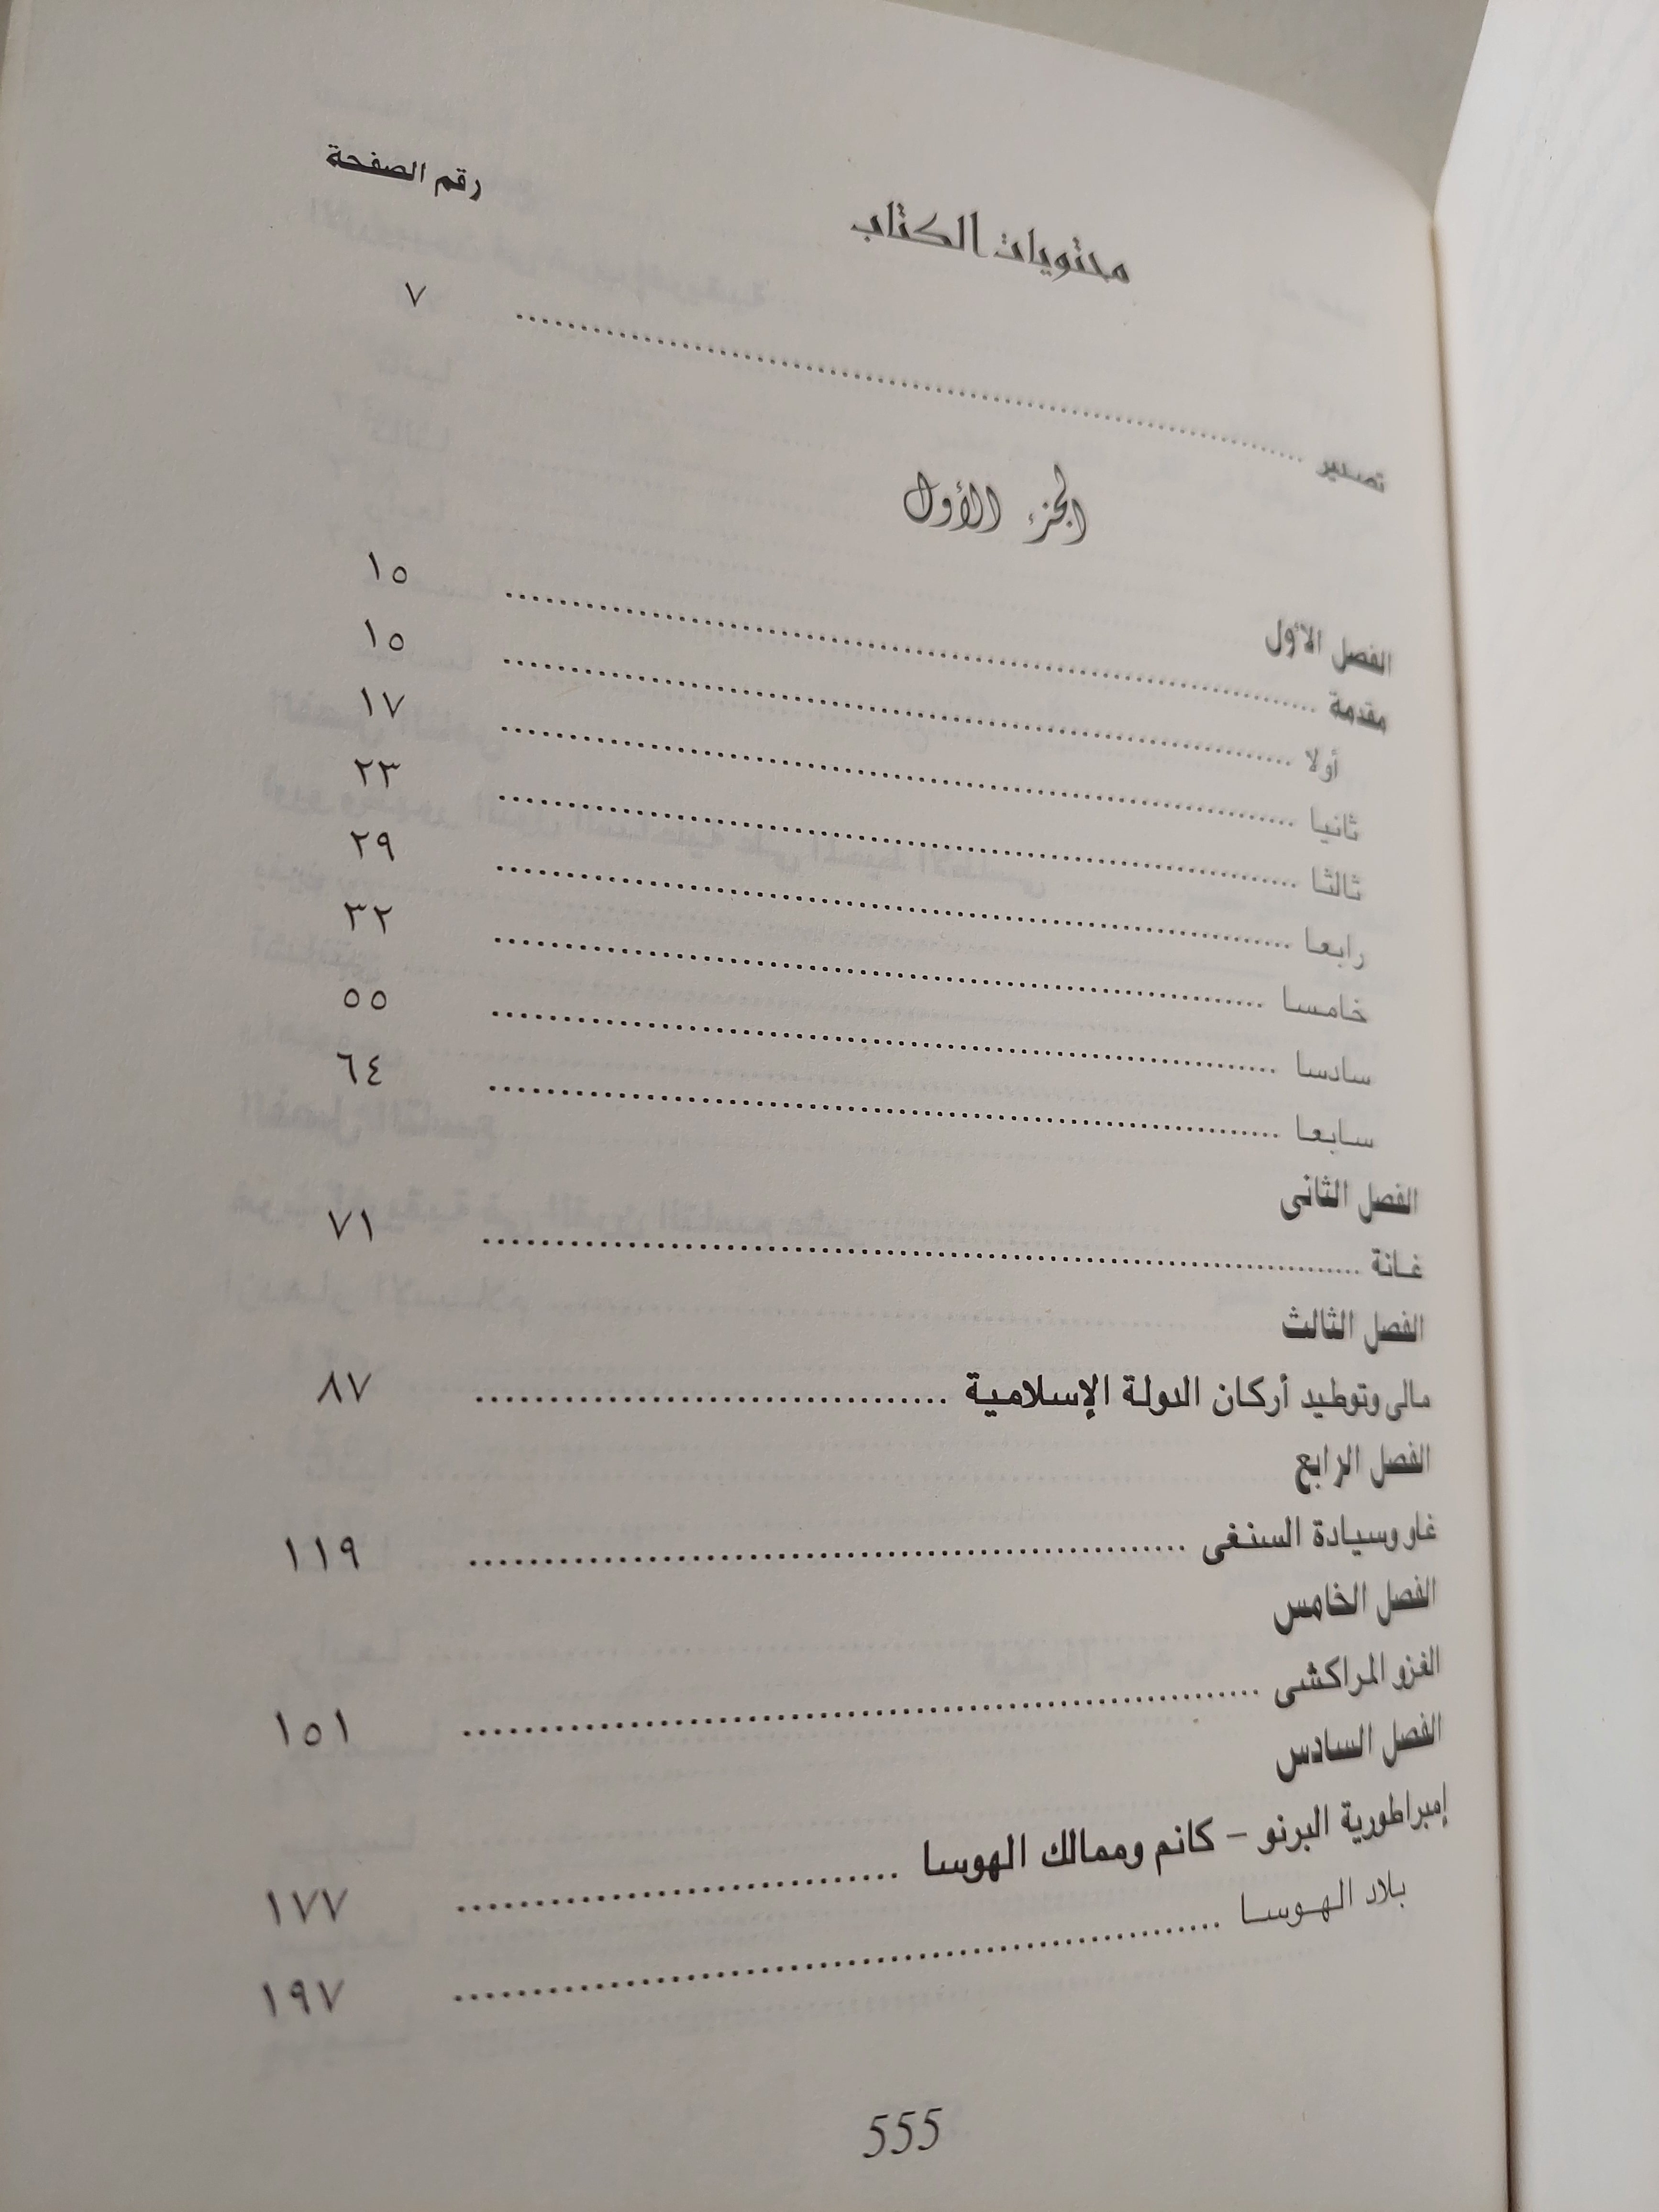 رقم الصفحة
محتويات الكتاب
تصدير ........ ٧
الجزء الأول
الفصل الأول
مقدمة ........ ١٥
أولا ........ ١٥
ثانيا ........ ١٧
ثالثا ........ ٢٣
رابعا ........ ٢٩
خامسا ........ ٣٢
سادسا ........ ٥٥
سابعا ........ ٦٤
الفصل الثانى
غانة ........ ٧١
الفصل الثالث
مالى وتوطيد أركان الدولة الإسلامية ........ ٨٧
الفصل الرابع
غاو وسيادة السنغى ........ ١١٩
الفصل الخامس
الغزو المراكشى ........ ١٥١
الفصل السادس
إمبراطورية البرنو – كانم وممالك الهوسا ........ ١٧٧
بلاد الهوسا ........ ١٩٧
555